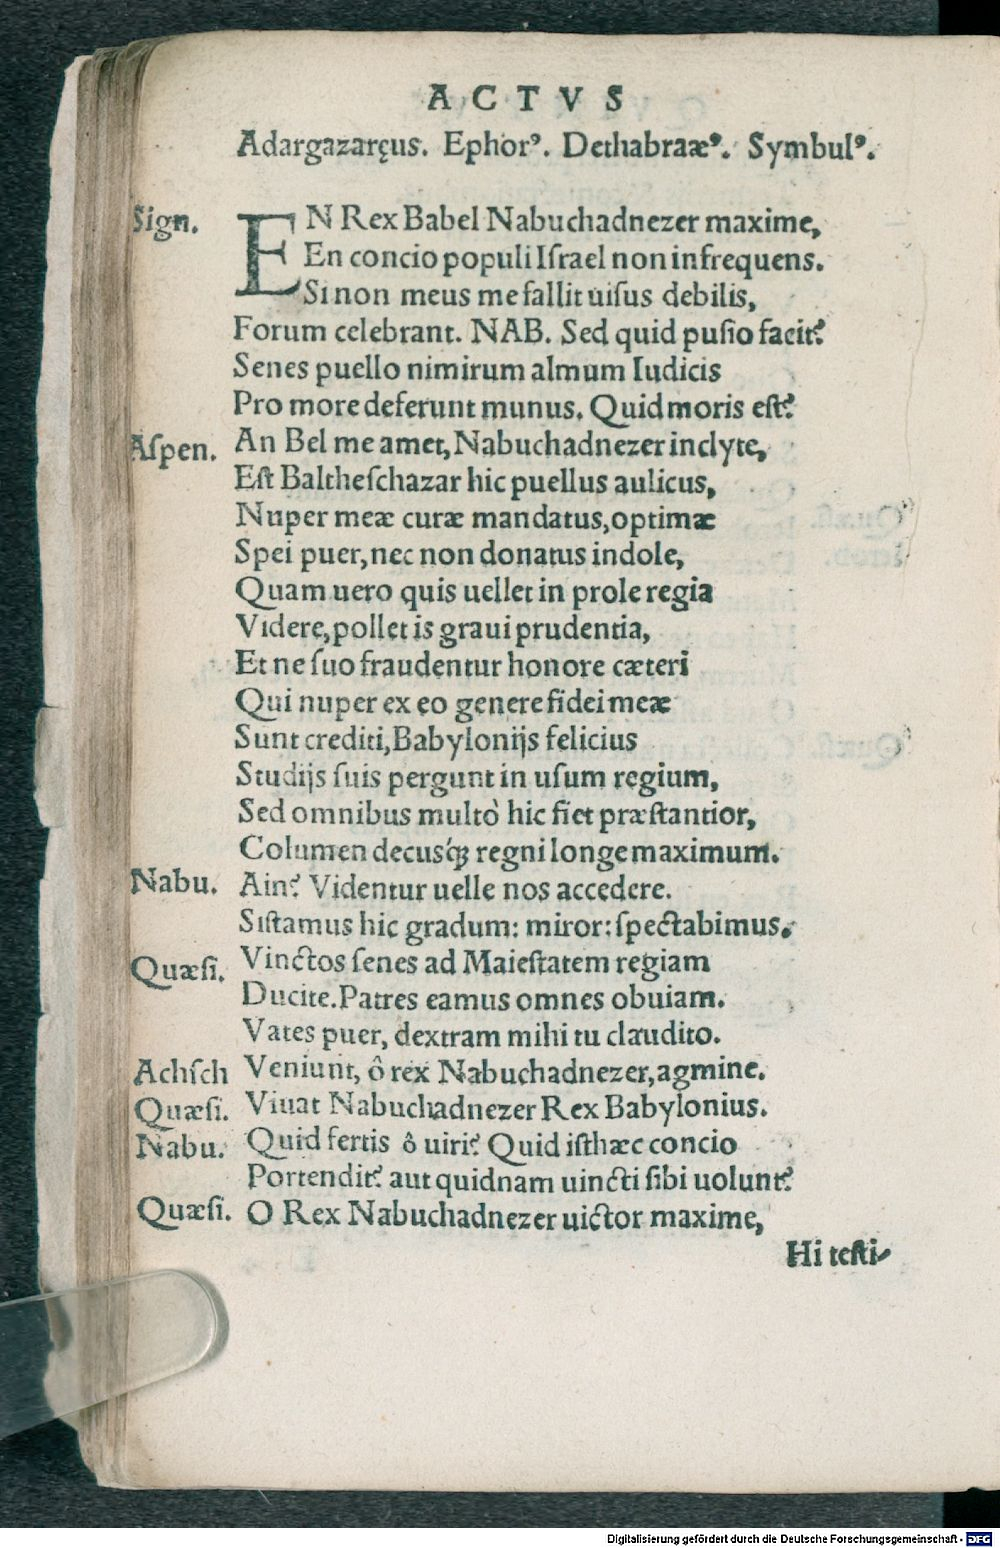 ACTVS
Adargazaręus. Ephorꝰ. Dethabraæꝰ. Symbulꝰ.
Sign. EN Rex Babel Nabuchadnezer maxime,
En concio populi Iſrael non infrequens.
Si non meus me fallit uiſus debilis,
Forum celebrant. NAB. Sed quid puſio facit?
Senes puello nimirum almum Iudicis
Pro more deferunt munus. Quid moris eſt?
Aſpen. An Bel me amet, Nabuchadnezer inclyte,
Eſt Baltheſchazar hic puellus aulicus,
Nuper meæ curæ mandatus, optimæ
Spei puer, nec non donatus indole,
Quam uero quis uellet in prole regia
Videre, pollet is graui prudentia,
Et ne ſuo fraudentur honore cæteri
Qui nuper ex eo genere fidei meæ
Sunt crediti, Babylonijs felicius
Studijs ſuis pergunt in uſum regium,
Sed omnibus multò hic fiet præſtantior,
Columen decusq́; regni longe maximum.
Nabu. Ain? Videntur uelle nos accedere.
Siſtamus hic gradum: miror: ſpectabimus.
Quæſi. Vinctos ſenes ad Maieſtatem regiam
Ducite. Patres eamus omnes obuiam.
Vates puer, dextram mihi tu claudito.
Achſch Veniunt, ô rex Nabuchadnezer, agmine.
Quæſi. Viuat Nabuchadnezer Rex Babylonius.
Nabu. Quid fertis ô uiri? Quid iſthæc concio
Portendit? aut quidnam uincti ſibi uolunt?
Quæſi. O Rex Nabuchadnezer uictor maxime,
Hi teſti-
Digitalisierung gefördert durch die Deutsche Forschungsgemeinschaft - DFG